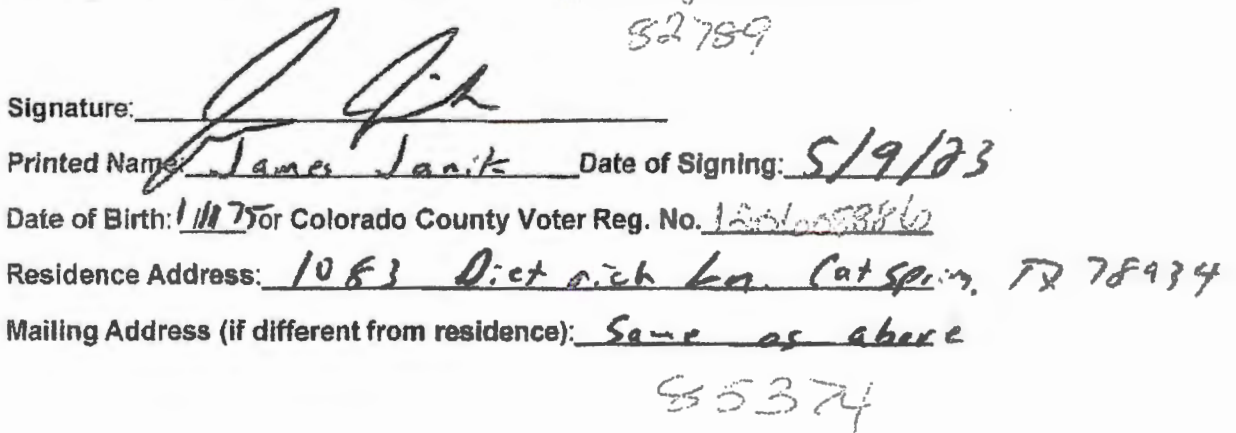 82789
Signature:
Printed Name: James Janik Date of Signing: 5/9/23
Date of Birth: 1/1/75 or Colorado County Voter Reg. No.
Residence Address: 1083 Dietrich Ln. Cat Spring, TX 78934
Mailing Address (if different from residence): Same as above
85374